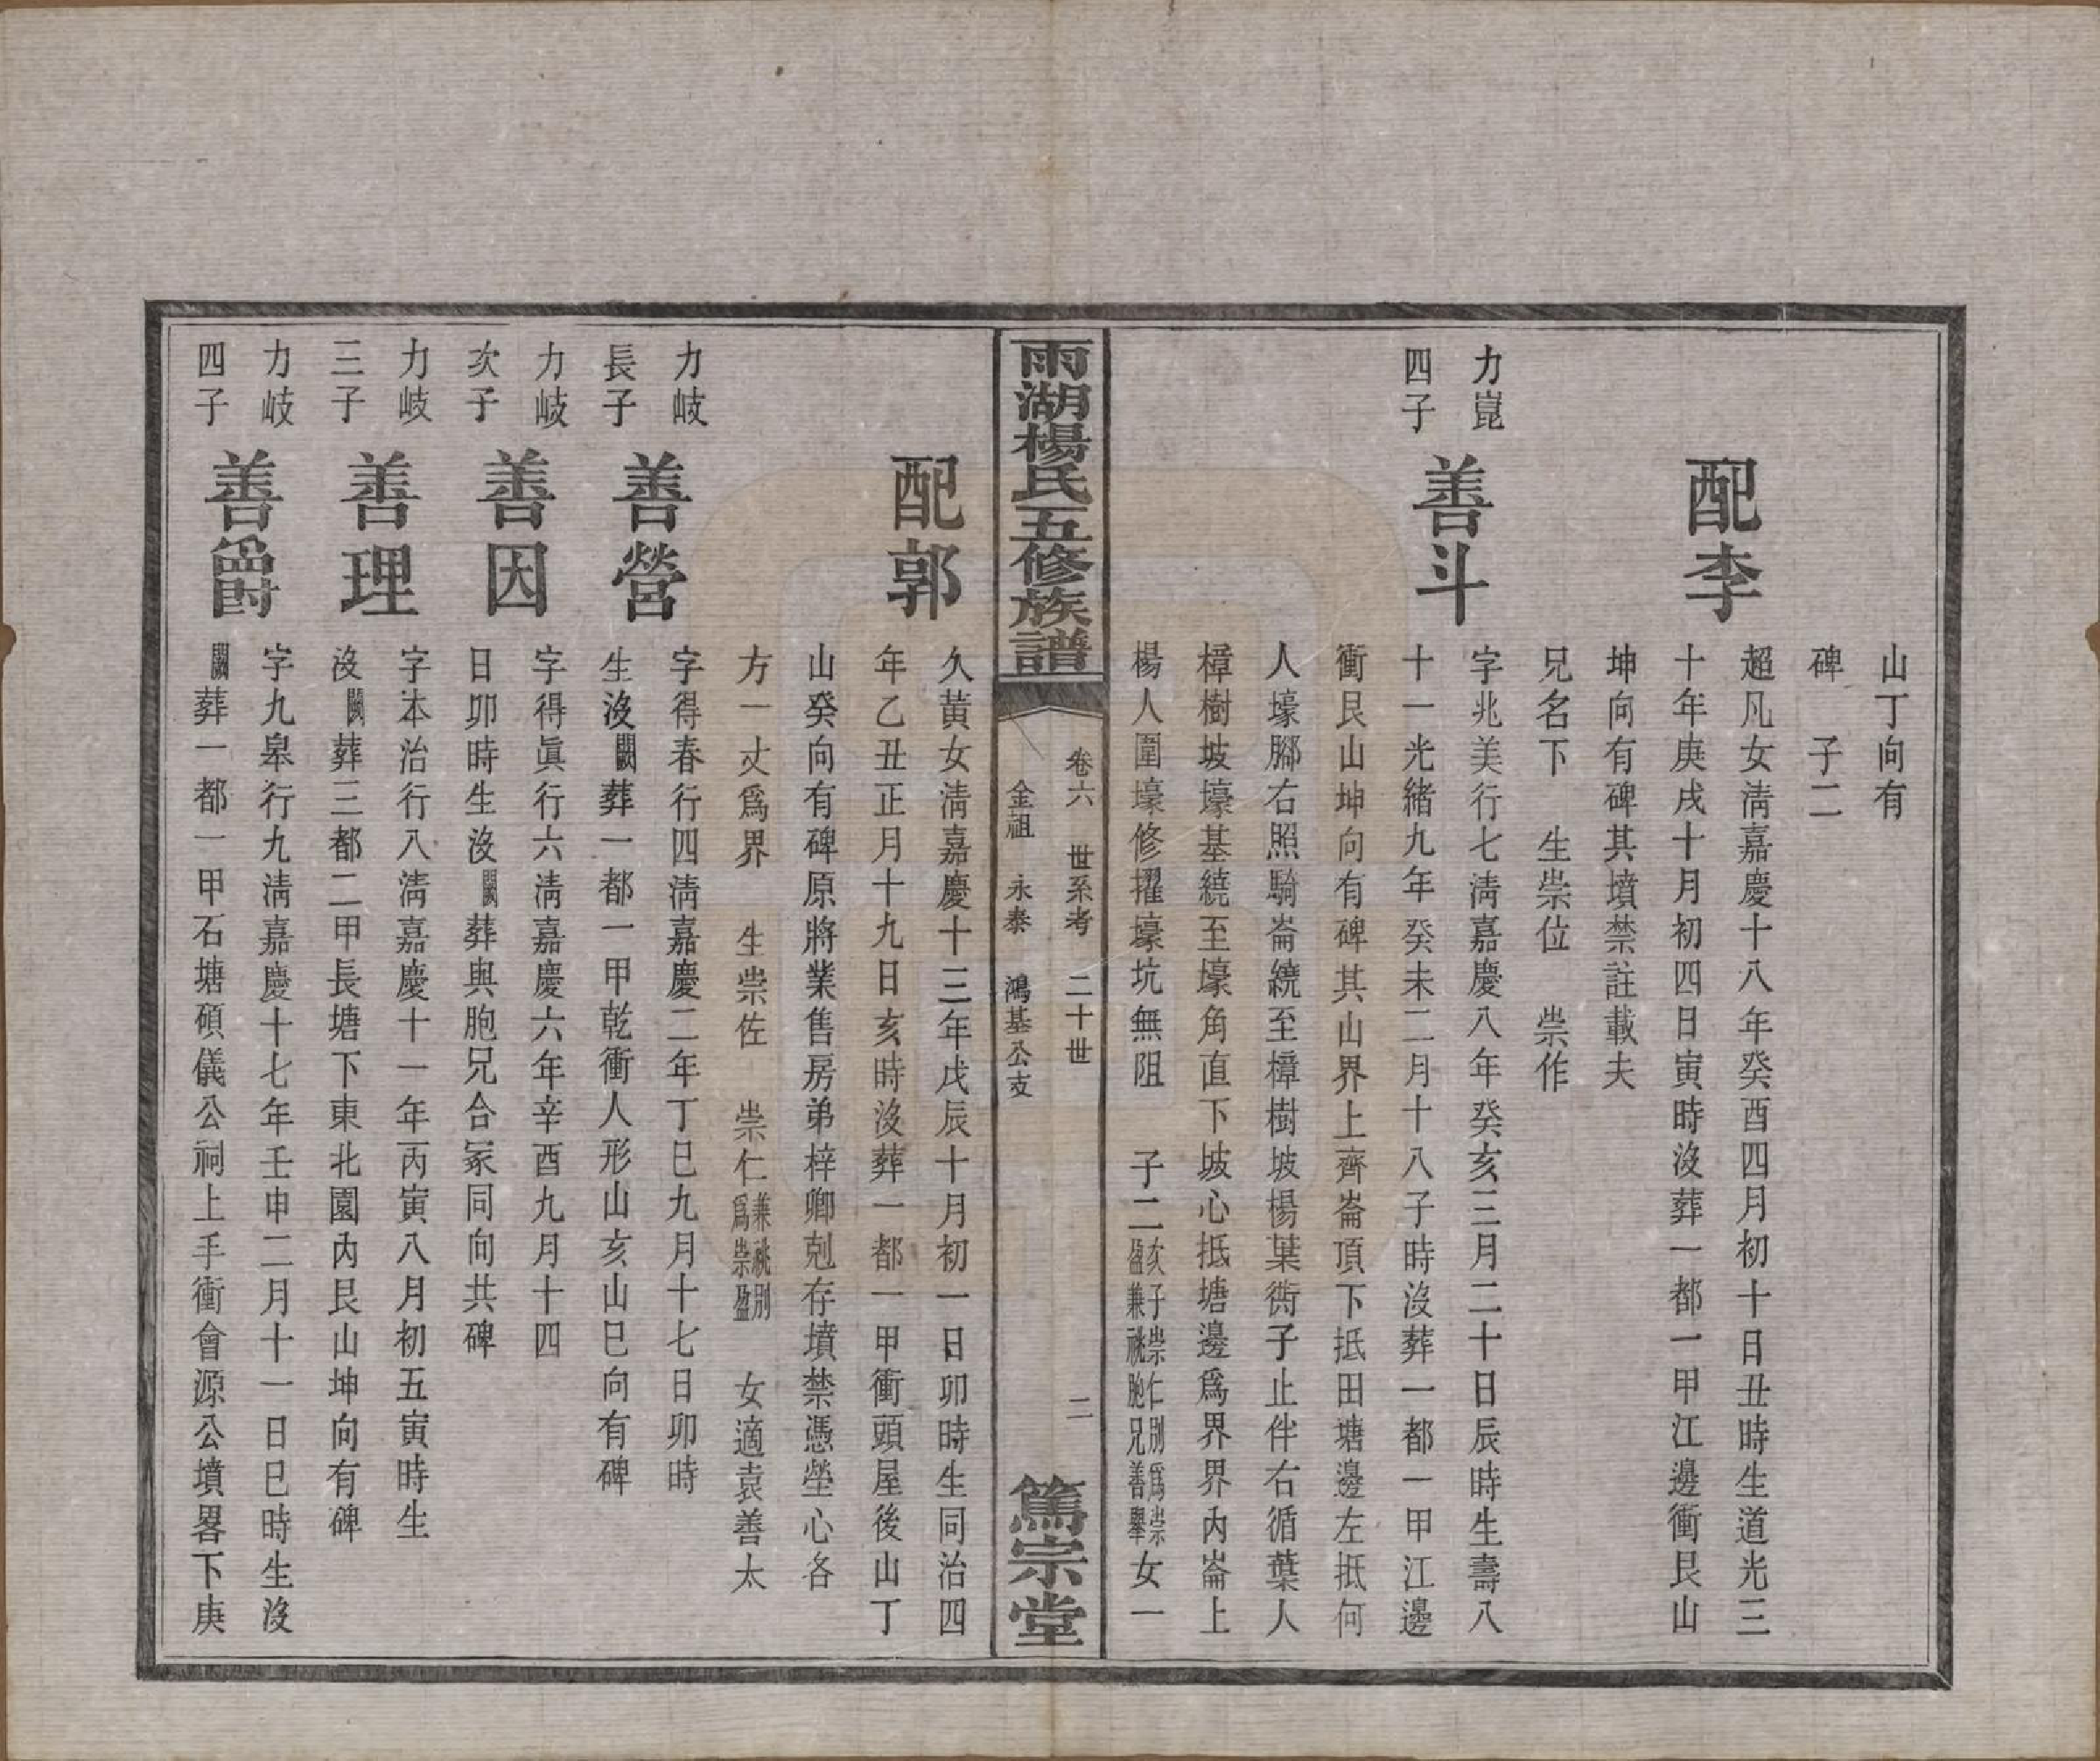 山丁向有
碑　子二
配李
超凡女淸嘉慶十八年癸酉四月初十日丑時生道光三
十年庚戌十月初四日寅時沒葬一都一甲江邊衝艮山
坤向有碑其墳禁註載夫
兄名下　生崇位　崇作
力崑
四子
善斗
字兆美行七淸嘉慶八年癸亥三月二十日辰時生壽八
十一光緖九年癸未二月十八子時沒葬一都一甲江邊
衝艮山坤向有碑其山界上齊崙頂下抵田塘邊左抵何
人壕脚右照騎崙繞至樟樹坡楊葉衖子止伴右循葉人
樟樹坡壕基繞至壕角直下坡心抵塘邊爲界界內崙上
楊人圍壕修擢壕坑無阻　子二次子崇仁別爲崇盈兼祧胞兄善舉女一
雨湖楊氏五修族譜
卷六　世系考　二十世
金祖　永泰　鴻基公支
二
篤宗堂
配郭
久黃女淸嘉慶十三年戊辰十月初一日卯時生同治四
年乙丑正月十九日亥時沒葬一都一甲衝頭屋後山丁
山癸向有碑原將業售房弟梓卿剋存墳禁憑塋心各
方一丈爲界　生崇佐　崇仁兼祧別爲崇盈　女適袁善太
力岐
長子
善營
字得春行四淸嘉慶二年丁巳九月十七日卯時
生沒闕葬一都一甲乾衝人形山亥山巳向有碑
力岐
次子
善因
字得眞行六淸嘉慶六年辛酉九月十四
日卯時生沒闕葬與胞兄合冢同向共碑
力岐
三子
善理
字本治行八淸嘉慶十一年丙寅八月初五寅時生
沒闕葬三都二甲長塘下東北園內艮山坤向有碑
力岐
四子
善爵
字九皋行九淸嘉慶十七年壬申二月十一日巳時生沒
闕葬一都一甲石塘碩儀公祠上手衝會源公墳畧下庚